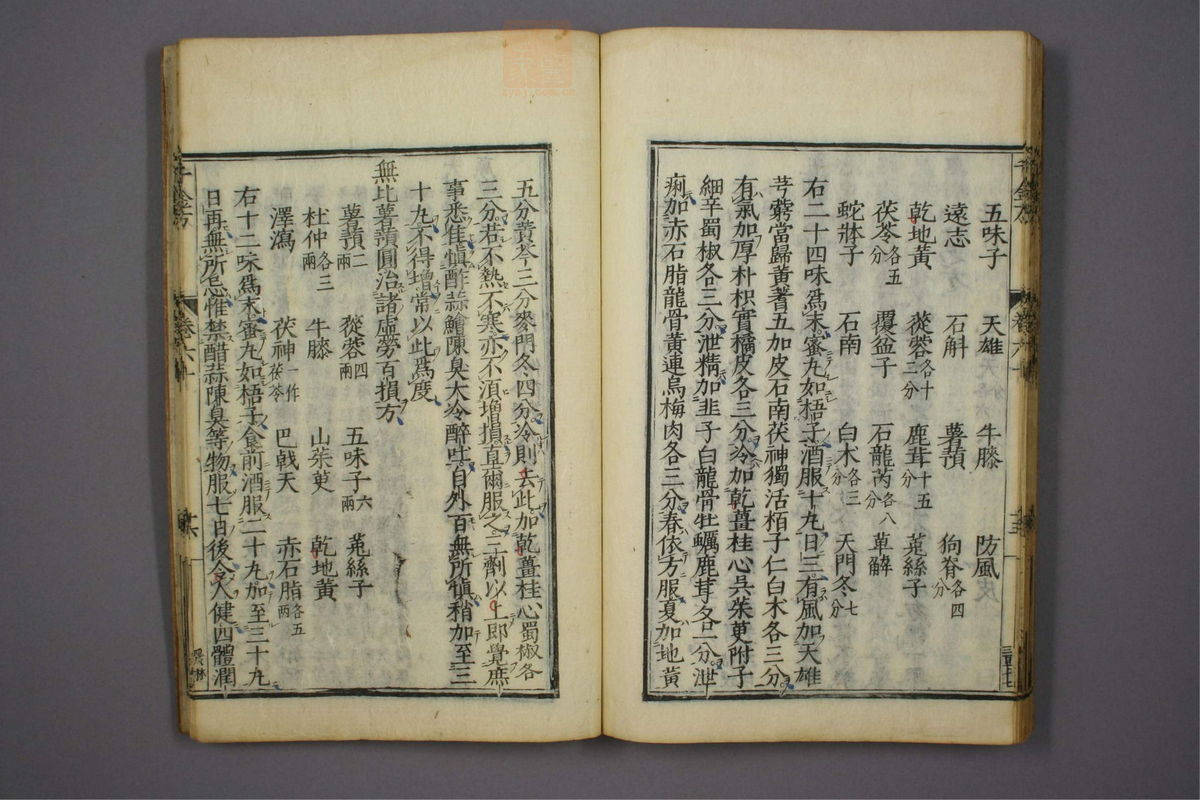 五味子 天雄 牛膝 防風
遠志 石斛 薯蕷 狗脊各四分
乾地黄 蓯蓉各十二分 鹿茸十五分 菟絲子
茯苓各五分 覆盆子 石龍芮各八分 萆解
蛇牀子 石南 白术各三分 天門冬七分
右二十四味爲末蜜丸如梧子酒服十丸日三有風加天雄
芎藭當歸黄蓍五加皮石南茯神獨活栢子仁白术各三分
有氣加厚朴枳實橘皮各三分冷加乾薑桂心呉茱萸附子
細辛蜀椒各三分泄精加韭子白龍骨牡蠣鹿茸各二分泄
痢加赤石脂龍骨黄連烏梅肉各三分春依方服夏加地黄
五分黄芩三分麥門冬四分冷則去此加乾薑桂心蜀椒各
三分若不熱不寒亦不湏増損直爾服之三劑以上即覺庶
事悉佳慎酢蒜鱠陳臭大冷醉吐自外百無所慎稍加至三
十丸不得増常以此爲度
無比薯蕷圓治諸虛勞百損方
薯蕷二兩 蓯蓉四兩 五味子六兩 菟絲子
杜仲各三兩 牛膝 山茱萸 乾地黄
澤瀉 茯神一作茯苓 巴戟天 赤石脂各五兩
右十二味爲末蜜丸如梧子食前酒服二十丸加至三十丸
日再無所忌惟禁醋蒜陳臭等物服七日後令人健四體潤
千金方 卷六十